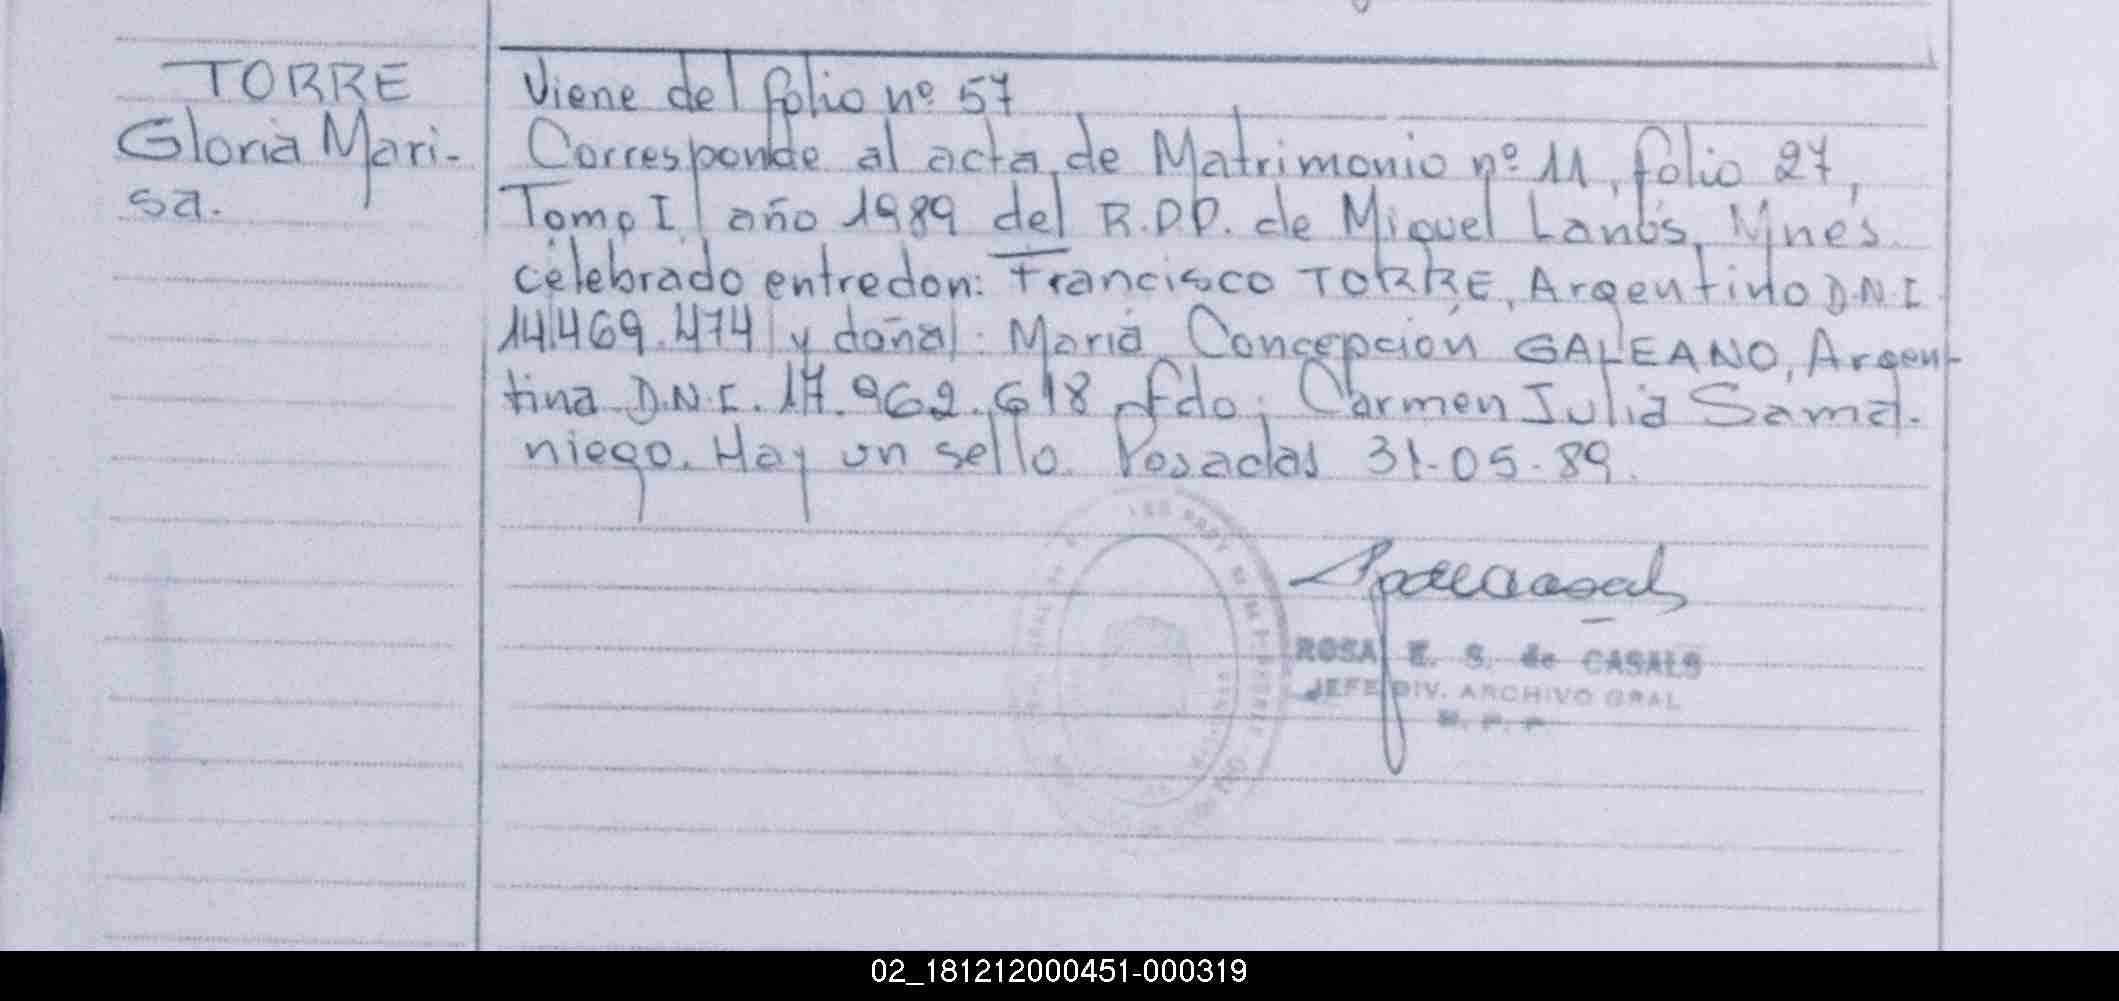 TORRE
Gloria Mari-
sa.
Viene del folio nº 57
Corresponde al acta de Matrimonio nº 11, folio 27,
Tomo I año 1989 del R.P.P. de Miguel Lanús, Mnes
celebrado entredon: Francisco TORRE, Argentino D.N.I
14.469.474 y doña: Maria Concepción GALEANO, Argen-
tina D.N.I. 17.962.618 fdo: Carmen Julia Sama-
niego. Hay un sello. Posadas 31-05-89.
ROSA E. S. de CASALS
JEFE DIV. ARCHIVO GRAL
R. P. P
02_181212000451-000319